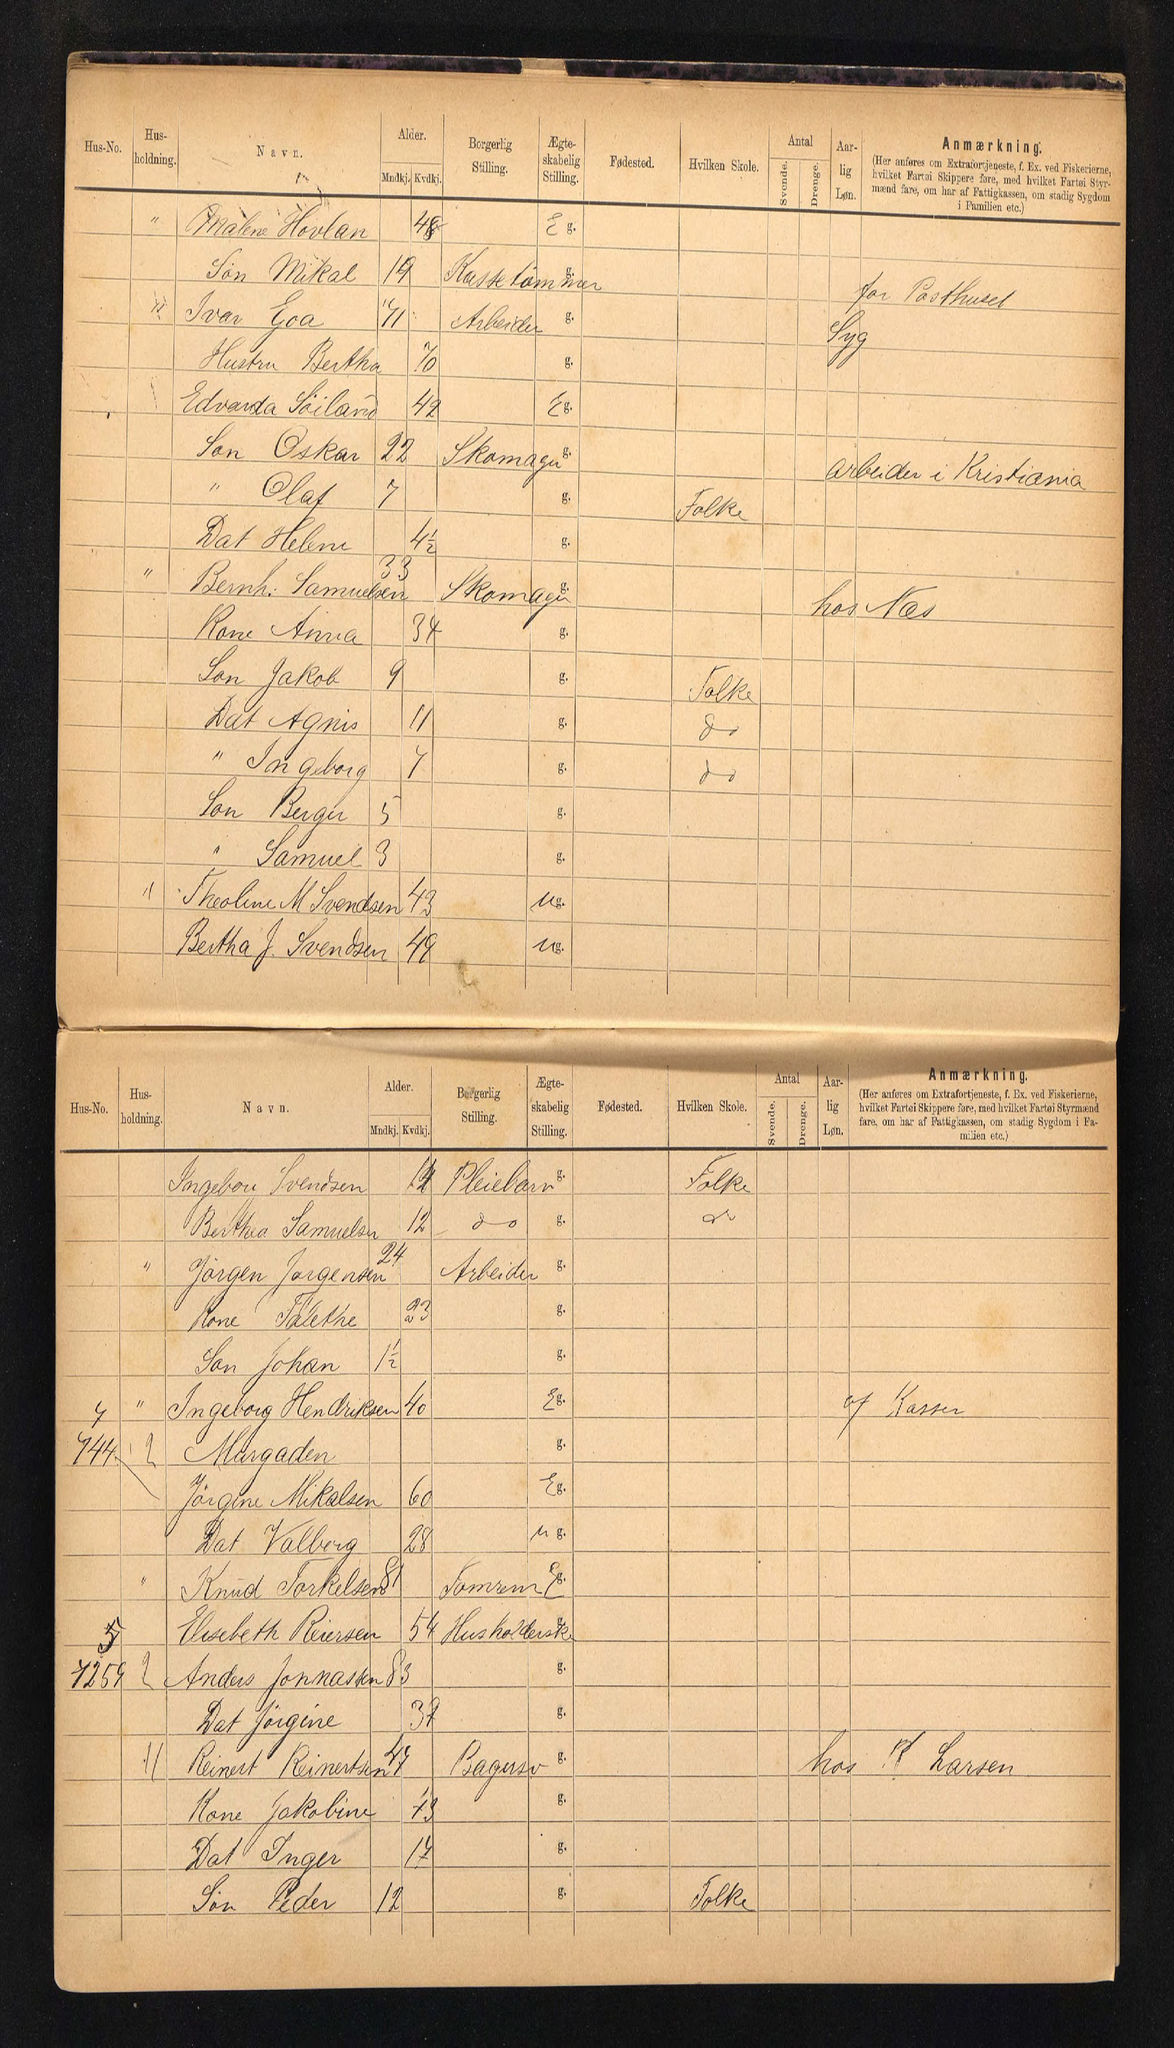 Hus-No. Hus-holdning. Navn. Alder. Mndkj. Kvdkj. Borgerlig Stilling. Ægte-skabelig Stilling. Fødested. Hvilken Skole. Antal Svende. Drenge. Aar-lig Løn. Anmærkning.
(Her anføres om Extrafortjeneste, f. Ex. ved Fiskerierne, hvilket Fartøi Skippere føre, med hvilket Fartøi Styrmænd fare, om har af Fattigkassen, om stadig Sygdom i Familien etc.)
" Malene Hovlan 48 E g.
Søn Mikal 19 Kassetømmer g. for Posthuset
" Ivar Goa 71 Arbeider g. Syg
Hustru Bertha 70 g.
Edvarda Söiland 42 E g.
Son Oskar 22 Skomager g. arbeider i Kristiania
" Olaf 7 g. Folke
Dat Helene 4½ g.
" Bernh. Samuelsen 33 Skomager g. hos Næs
Kone Anna 34 g.
Son Jakob 9 g. Folke
Dat Agnis 11 g. do
" Ingeborg 7 g. do
Son Berger 5 g.
" Samuel 3 g.
" Theoline M Svendsen 43 u g.
Bertha J. Svendsen 49 u g.
Hus-No. Hus-holdning. Navn. Alder. Mndkj. Kvdkj. Borgerlig Stilling. Ægte-skabelig Stilling. Fødested. Hvilken Skole. Antal Svende. Drenge. Aar-lig Løn. Anmærkning.
(Her anføres om Extrafortjeneste, f. Ex. ved Fiskerierne, hvilket Fartøi Skippere føre, med hvilket Fartøi Styrmænd fare, om har af Fattigkassen, om stadig Sygdom i Familien etc.)
Ingeborg Svendsen Pleiebarn g. Folke
Berthea Samuelsen 12 do g. do
" Jörgen Jørgensen 24 Arbeider g.
Kone Talethe 23 g.
Son Johan 1½ g.
" Ingeborg Hendriksen 40 E g. af Kassen
744 Margaden g.
Jörgine Mikalsen 60 E g.
Dat Valborg 28 u g.
" Knud Torkelsen 81 Tomrem E g.
5 Elisebeth Reiersen 54 Husholderske g.
1259 Anders Jonnassen 83 g.
Dat Jörgine 37 g.
" Reinert Reinertsen 47 Bagersv g. hos Larsen
Kone Jakobine 43 g.
Dat Inger 17 g.
Sön Peder 12 g. Folke